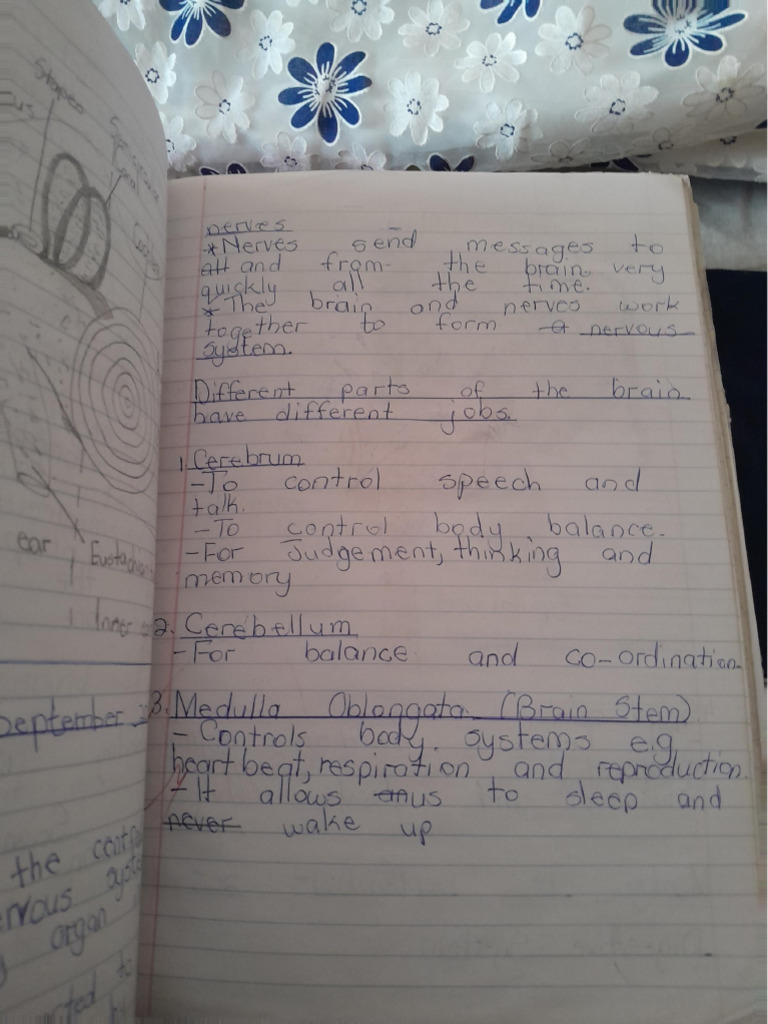 Stapes
ear
Eustach
Inner
September
the cent
ervous syst
organ
nerves
*Nerves send messages to
all and from the brain very
quickly all the time.
* The brain and nerves work
together to form a nervous
system.
Different parts of the brain
have different jobs.
1. Cerebrum
-To control speech and
talk.
-To control body balance.
-For Judgement, thinking and
memory
2. Cerebellum
-For balance and co-ordination.
3. Medulla Oblongata (Brain Stem)
- Controls body systems e.g
heart beat, respiration and reproduction.
- It allows us to sleep and
never wake up